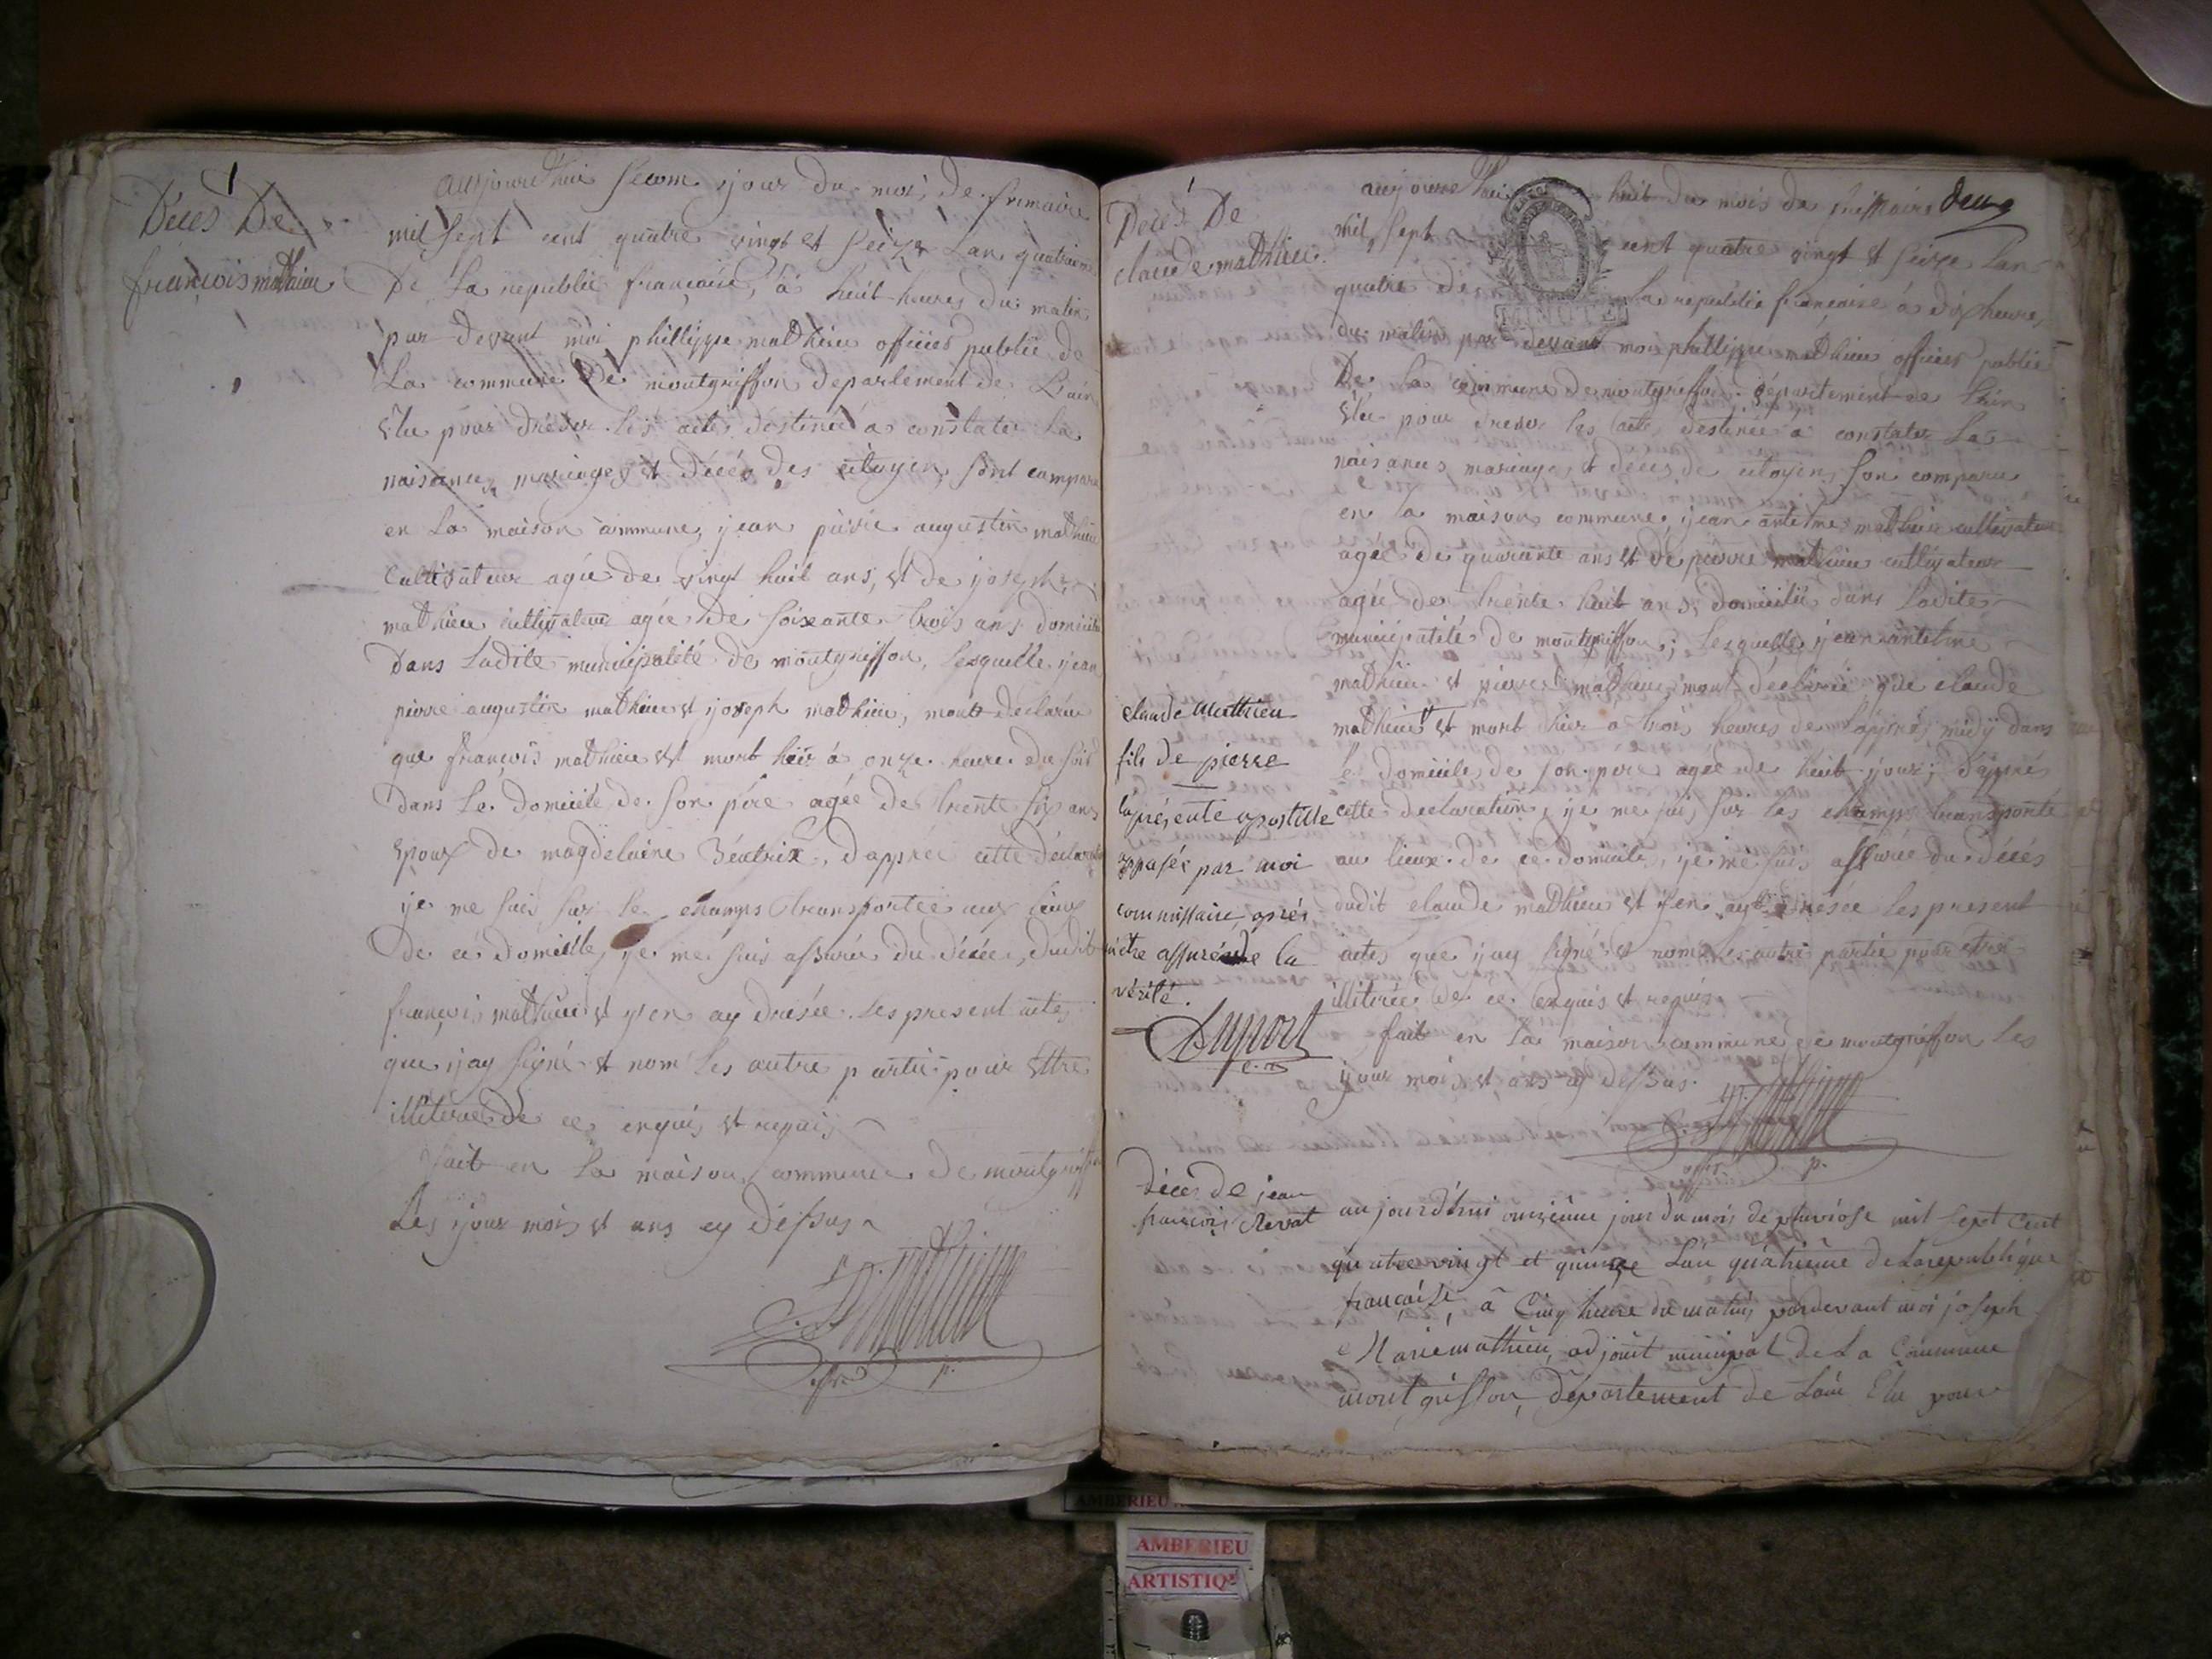 Déces De
françois mathieu
aujourd'huis second jour du mois de frimaire
mil sept cent quatre vingt et seize Lan quatrieme
De La republie française, à huit heures du matin
par devant moi phillippe mathieu officier publie de
La commune De montgriffon departement de L'ain
Elu pour dréser les actes déstiné à constater La
naisance, mariages et décés des citoyen, sont comparu
en La maison commune, jean pierre augustin mathieu
Cultivateur agée de vingt huit ans, et de joseph
mathieu cultivateur agée de soixante trois ans domicilie
Dans Ladite municipalité de montgriffon, Lesquelle jean
pierre augustin mathieu et joseph mathieu, mont déclarée
que françois mathieu est mort hier à onze heure du soir
Dans Le domicile de son pére agée de trente six ans
Epoux de magdelaine Béatrix, d'apprée cette déclarat
je me suis sur le champs transportée aux lieux
de ce domicile, je me suis assurée du décée, dudit
françois mathieu et j'en ay drésée Les present actes
que j'ay signé et nom Les autre partie pour Ettre
illiterée de ce enquis et requis
fait en La maison commune de montgriffon
Les jour mois et ans cy dessus
off.er p.
Déces De
claude mathieu.
aujourd'hui huit du mois de deux
mil sept cent quatre vingt et seize Lan
quatre de La republie française à dix heures
MINUTE
du matin par devant moi phillippe mathieu officier publie
De La commune de montgriffon département de L'ain
Elu pour dréser les actes destinée à constater La
naisances mariages et déces de citoyen, son comparu
en La maison commune, jean antelme mathieu cultivateur
agée de quarante ans et de pierre mathieu cultivateur
agée de trente huit ans, domicilié dans Ladite
municipalité de montgriffon; Lesquelle jean antelme
mathieu et pierre mathieu, mont déclarée que claude
mathieu est mort hier a trois heures de L'apprés midy dans
le domicile de son pere agée de huit jour; d'apprés
cette declaration, je me suis sur les champs transportée
au lieux de ce domicile, je me suis assurée du décés
dudit claude mathieu et j'en ay drésée Les present
actes que j'ay signé et nom Les autre partie pour etre
illiterée de ce enquis et requis.
fait en La maison commune de montgriffon Les
jour mois et ans cy dessus.
off.er p.
claude Matthieu
fils De pierre
la présente apostille
apposée par moi
commissaire, après
m'être assuré de la
vérité.
Duport
Décés de jean
françois Revat
aujourd'hui onzieme jour du mois de pluviose mil sept cent
quatre vingt et quinze L'an quatrieme de la republique
française, à Cinq heure du matin pardevant moi joseph
Marie mathieu, adjoint municipal de La Commune
montgriffon, département de L'ain Elu pour
AMBERIEU
AMBERIEU
ARTISTIQ